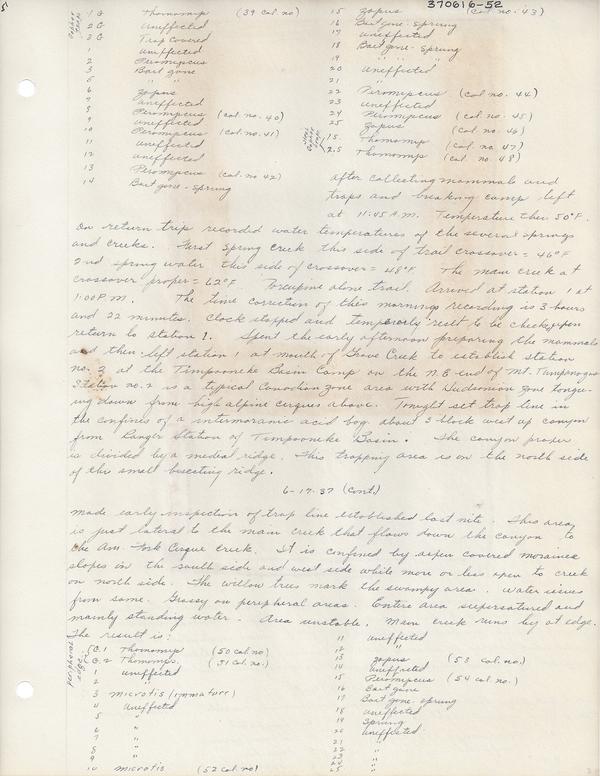 5
370616-52
gopher traps
1 G Thomomys (39 Cal no)
2 G Uneffected
3 G Trap Covered
1 Uneffected
2 Peromyscus
3 Bait gone
5 " "
6 Zapus
7 Uneffected
8 Peromyscus (Cal no. 40)
9 Uneffected
10 Peromyscus (Cal no. 41)
11 Uneffected
12 Uneffected
13 Peromyscus (Cal no 42)
14 Bait gone - Sprung
15 Zapus (Cal no. 43)
16 Bait gone - Sprung
17 Uneffected
18 Bait gone - Sprung
19 " "
20 Uneffected
21 "
22 Peromyscus (Cal no. 44)
23 Uneffected
24 Peromyscus (Cal no. 45)
25 Zapus (Cal no 46)
gopher traps
1 S. Thomomys (Cal no. 47)
2 S Thomomys (Cal no. 48)
After collecting mammals and
traps and breaking camp left
at 11:45 A.M. Temperature then 50°F.
On return trip recorded water temperatures of the several springs
and creeks. First Spring Creek this side of trail crossover = 46°F
2nd spring water this side of crossover = 48°F. The main creek at
crossover proper = 62°F. Porcupine along trail. Arrived at station 1 at
1:00 P.M. The time correction of this mornings recording is 3 hours
and 22 minutes. Clock stopped and temporarly reset to be checked upon
return to station 1. Spent the early afternoon preparing the mammals
and then left station 1 at mouth of Grove Creek to establish station
no. 2 at the Timpooneke Basin Camp on the N.E. end of Mt. Timpanogos
Station no. 2 is a typical Canadian zone area with Hudsonian zone tongue-
ing down from high alpine cirques above. Tonight set trap line in
the confines of a intermorainic acid bog about 3 block west up canyon
from Ranger Station of Timpooneke Basin. The canyon proper
is divided by a medial ridge. This trapping area is on the north side
of this small bisecting ridge.
6-17-37 (Cont.)
Made early inspection of trap line established last nite. This area
is just lateral to the main creek that flows down the canyon to
the Am. Fork Cirque Creek. It is confined by aspen covered moraines
slopes on the south side and west side while more or less open to creek
on north side. The willow trees mark the swampy area. Water issues
from same. Grassy on peripheral areas. Entire area supersatured and
mainly standing water. Area unstable. Main creek runs by at edge.
The result is:
Peripheral edge
G. 1 Thomomys (50 Cal. no)
G. 2 Thomomys (51 Cal. no.)
1 Uneffected
2 "
3 Microtis (immature)
4 Uneffected
5 "
6 "
7 "
8 "
9 "
10 Microtis (52 Cal no)
11 Uneffected
12 "
13 Zapus (53 Cal. no.)
14 Uneffected
15 Peromyscus (54 Cal. no.)
16 Bait gone
17 Bait gone - sprung
18 Uneffected
19 Sprung
20 Uneffected
21 "
22 "
23 "
24 "
25 "